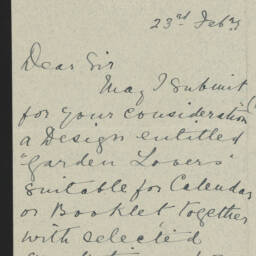 23rd Feby
Dear Sir
May I submit
for your consideration
a Design entitled
"Garden Lovers"
suitable for Calendar
or Booklet together
with selected